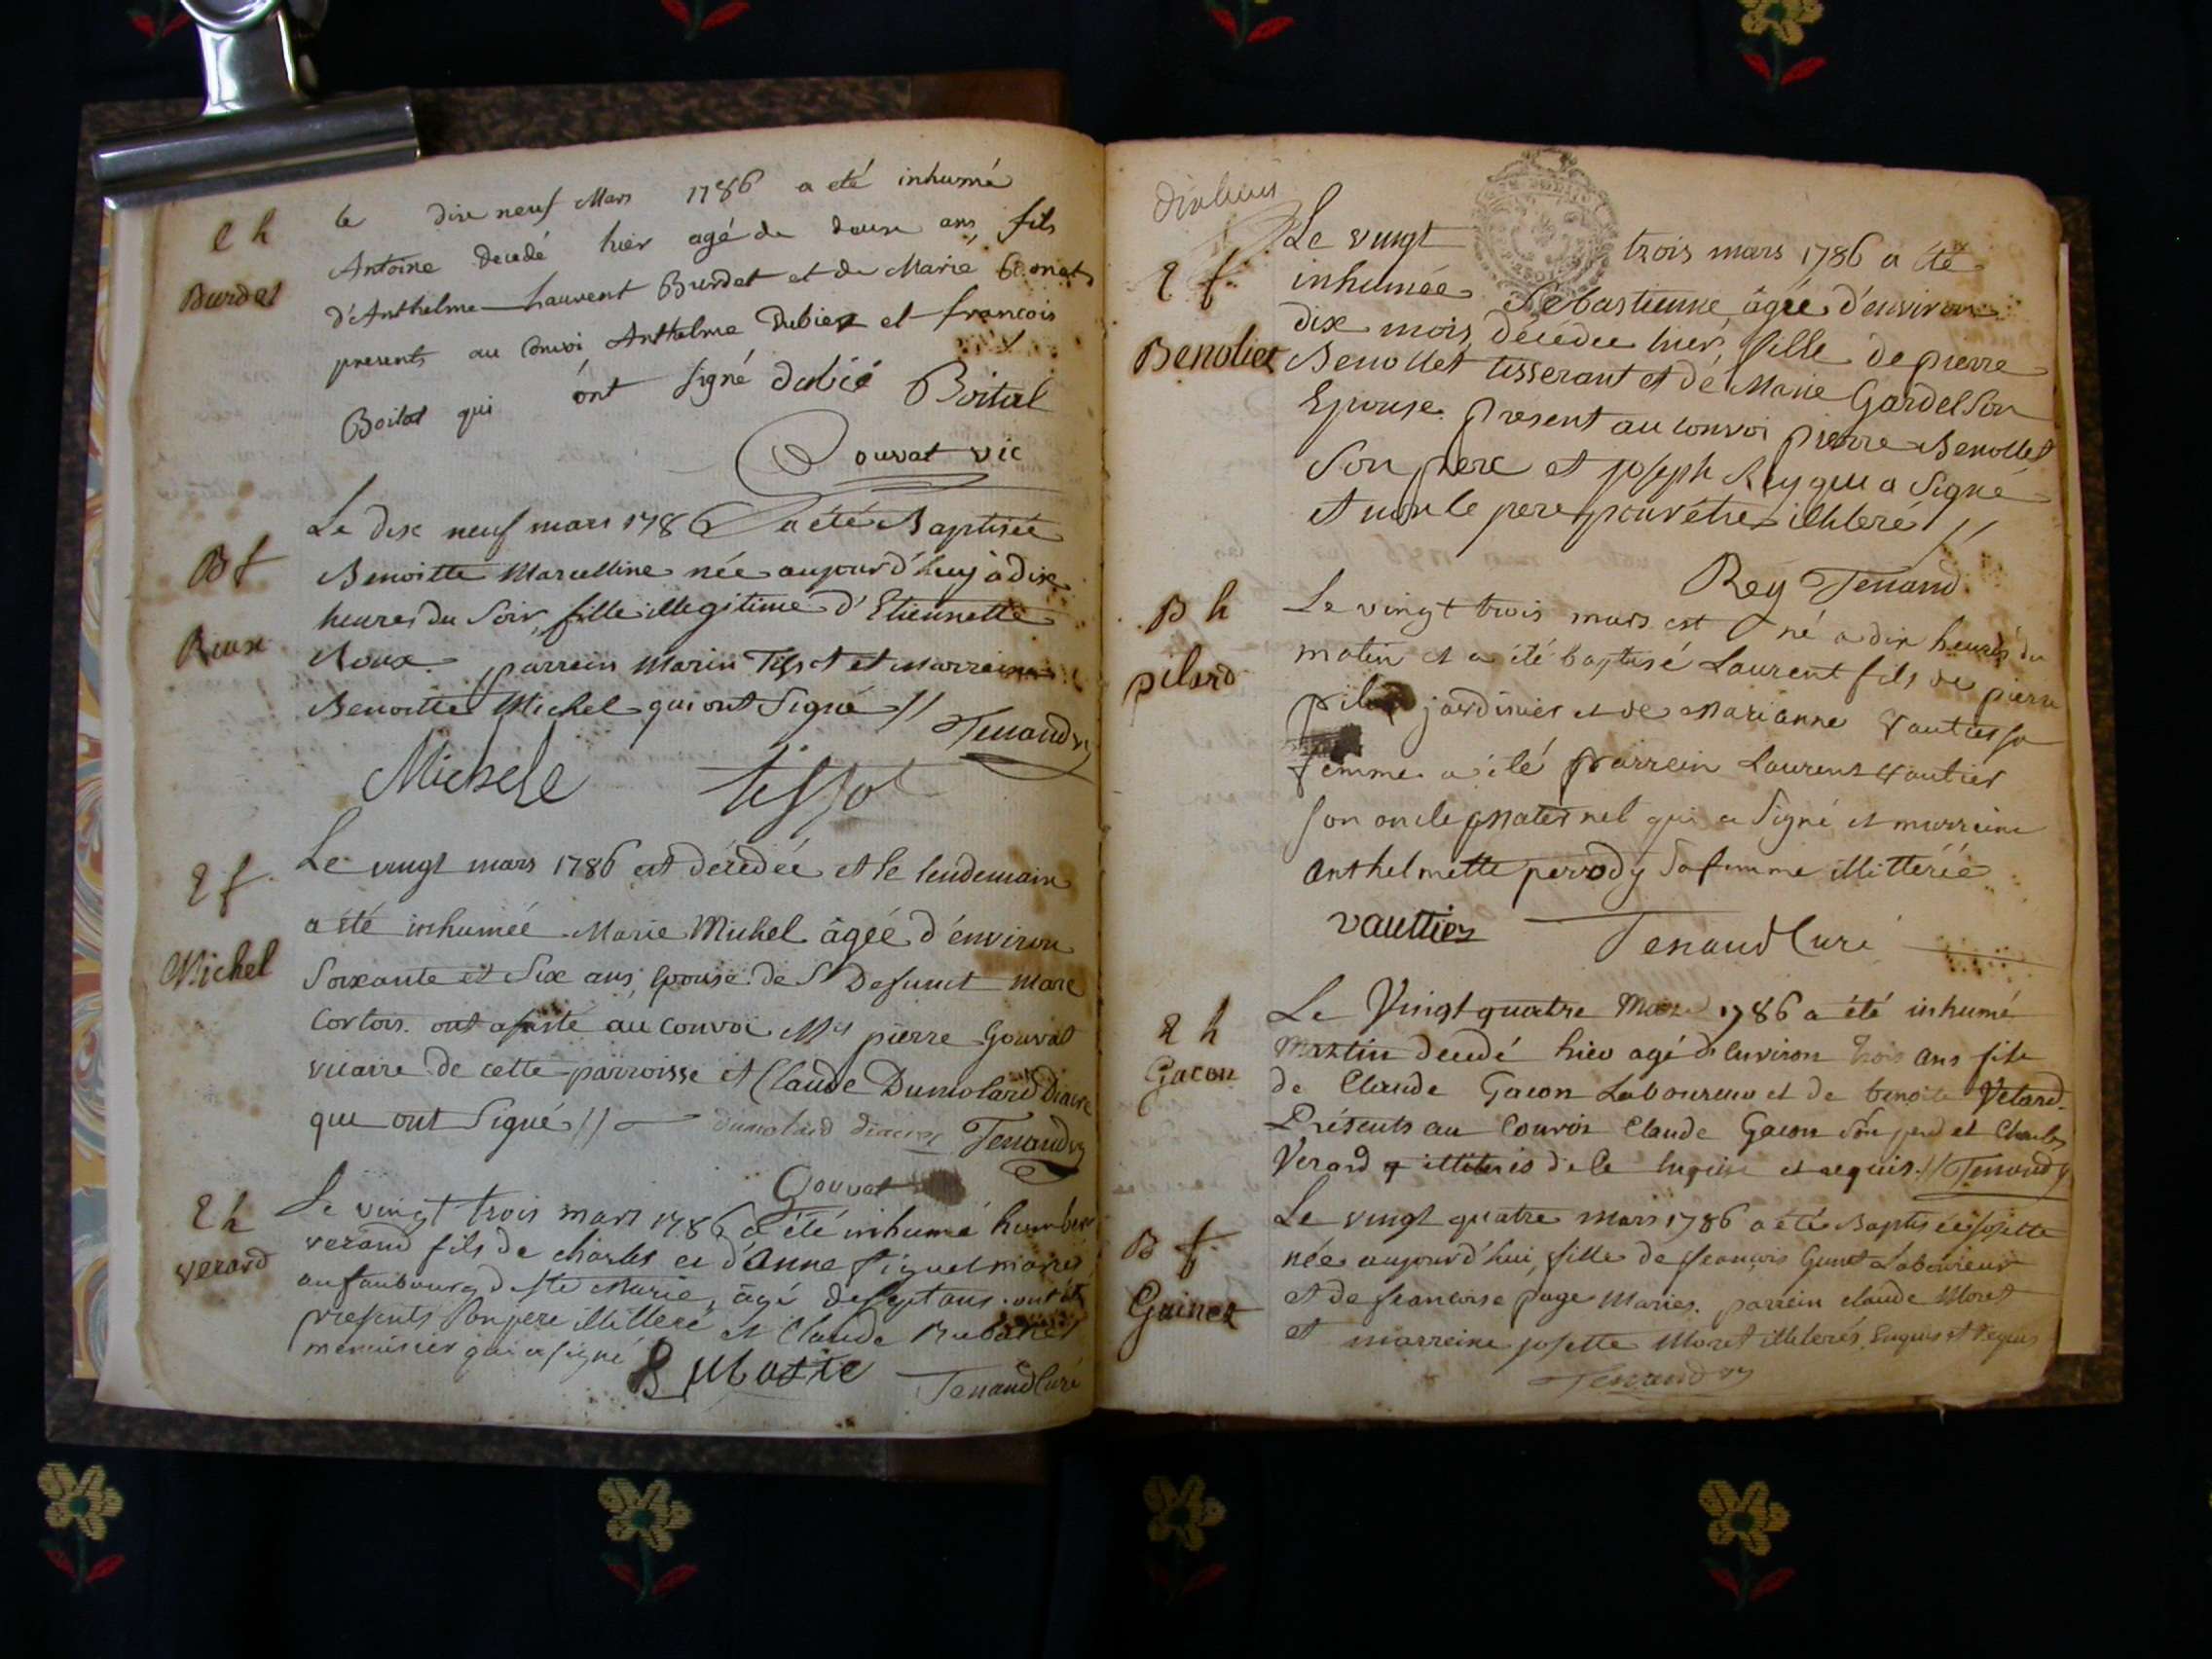 le dixe neuf Mars 1786 a été inhumé
Antoine decedé hier agé de douse ans fils
d'Anthelme Laurent Burdet et de Marie
presents au convoi Anthelme Dubiez et francois
Boital qui ont signé dubié Boital
Gouvat vic
Burdet
Le dix neuf mars 1786 a été Baptisée
Benoitte Marcelline née aujourd'huy à dix
heures du Soir, fille illegitime d'Etiennette
Roux. parrein Marin Tissot et Marreine
Benoitte Michel qui ont Signé //
Tenand
Michele tissot
B f
Roux
Le vingt mars 1786 est décedée et le lendemain
a été inhumée Marie Michel âgée d'environ
Soixante et Six ans, Epouse de Defunct Marc
Cortois. ont assisté au convoi Mre pierre Gouvat
vicaire de cette parroisse et Claude Dumolard Diacre
qui ont Signé // dumolard diacre Tenand
Gouvat
Michel
Le vingt trois mars 1786 a été inhumé humbert
verard fils de charles et d'Anne piquet mariés
au faubourg de Ste Marie, âgé de sept ans. ont été
presents Son pere illitteré et Claude Rubatier
menuisier qui a signé
Rubatie Tenand Curé
verard
Le vingt trois mars 1786 a été
inhumée Sebastienne, âgée d'environ
dix mois, décédée hier, fille de pierre
Benollet tisserant et de Marie Gardel Son
Epouse. present au convoi pierre Benollet
Son pere et joseph Rey qui a Signé
et non le pere pour être illiteré //
Rey Tenand
Benollet
Le vingt trois mars est né a dix heures du
matin et a été baptisé Laurent fils de pierre
jardinier et de Marianne Vautier sa
femme a été parrein Laurent Vautier
son oncle maternel qui a Signé et marreine
anthelmette perrody Sa femme illitterée
vauttier Tenand Curé
B h
pilard
Le Vingt quatre Mars 1786 a été inhumé
Martin decedé hier agé d'environ trois ans fils
de Claude Gacon Laboureur et de benoite Velard.
Présents au Convoi Claude Gacon Son pere et Charles
Verard illiterés de ce enquis et requis. // Tenand
Gacon
Le vingt quatre mars 1786 a été Baptisée josette
née aujourd'hui, fille de francois Laboureur
et de francoise page Mariés. parrein claude Moret
et marreine josette Moret illiterés. Enquis et Requis
Tenand
B f.
Guinet